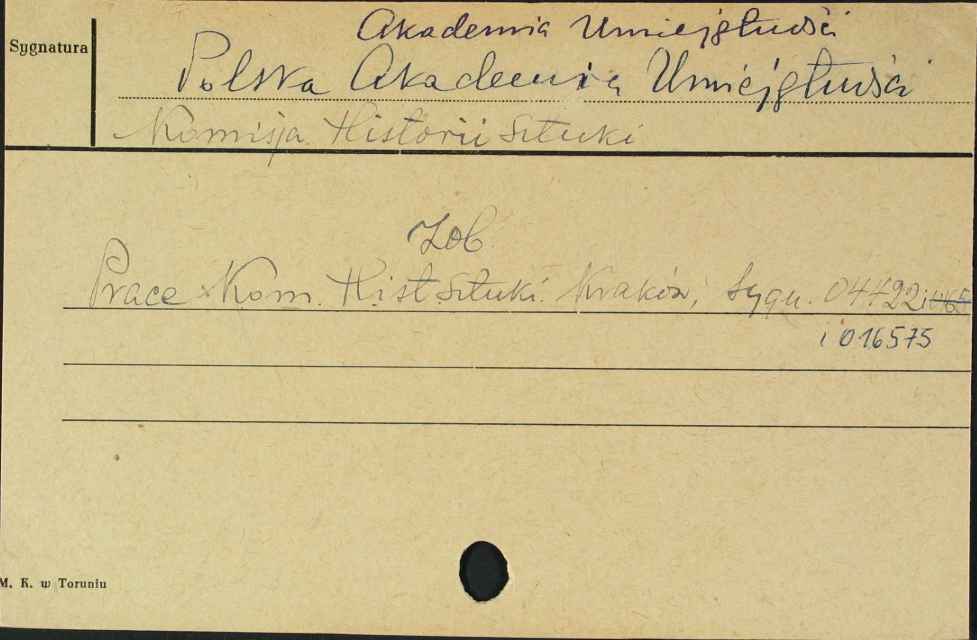 Akademia Umiejętności
Sygnatura
Polska Akademia Umiejętności
Komisja Historii Sztuki
Zob.
Prace Kom. Hist. Sztuki. Kraków, Sygn. 04422
i 016575
M. K. w Toruniu